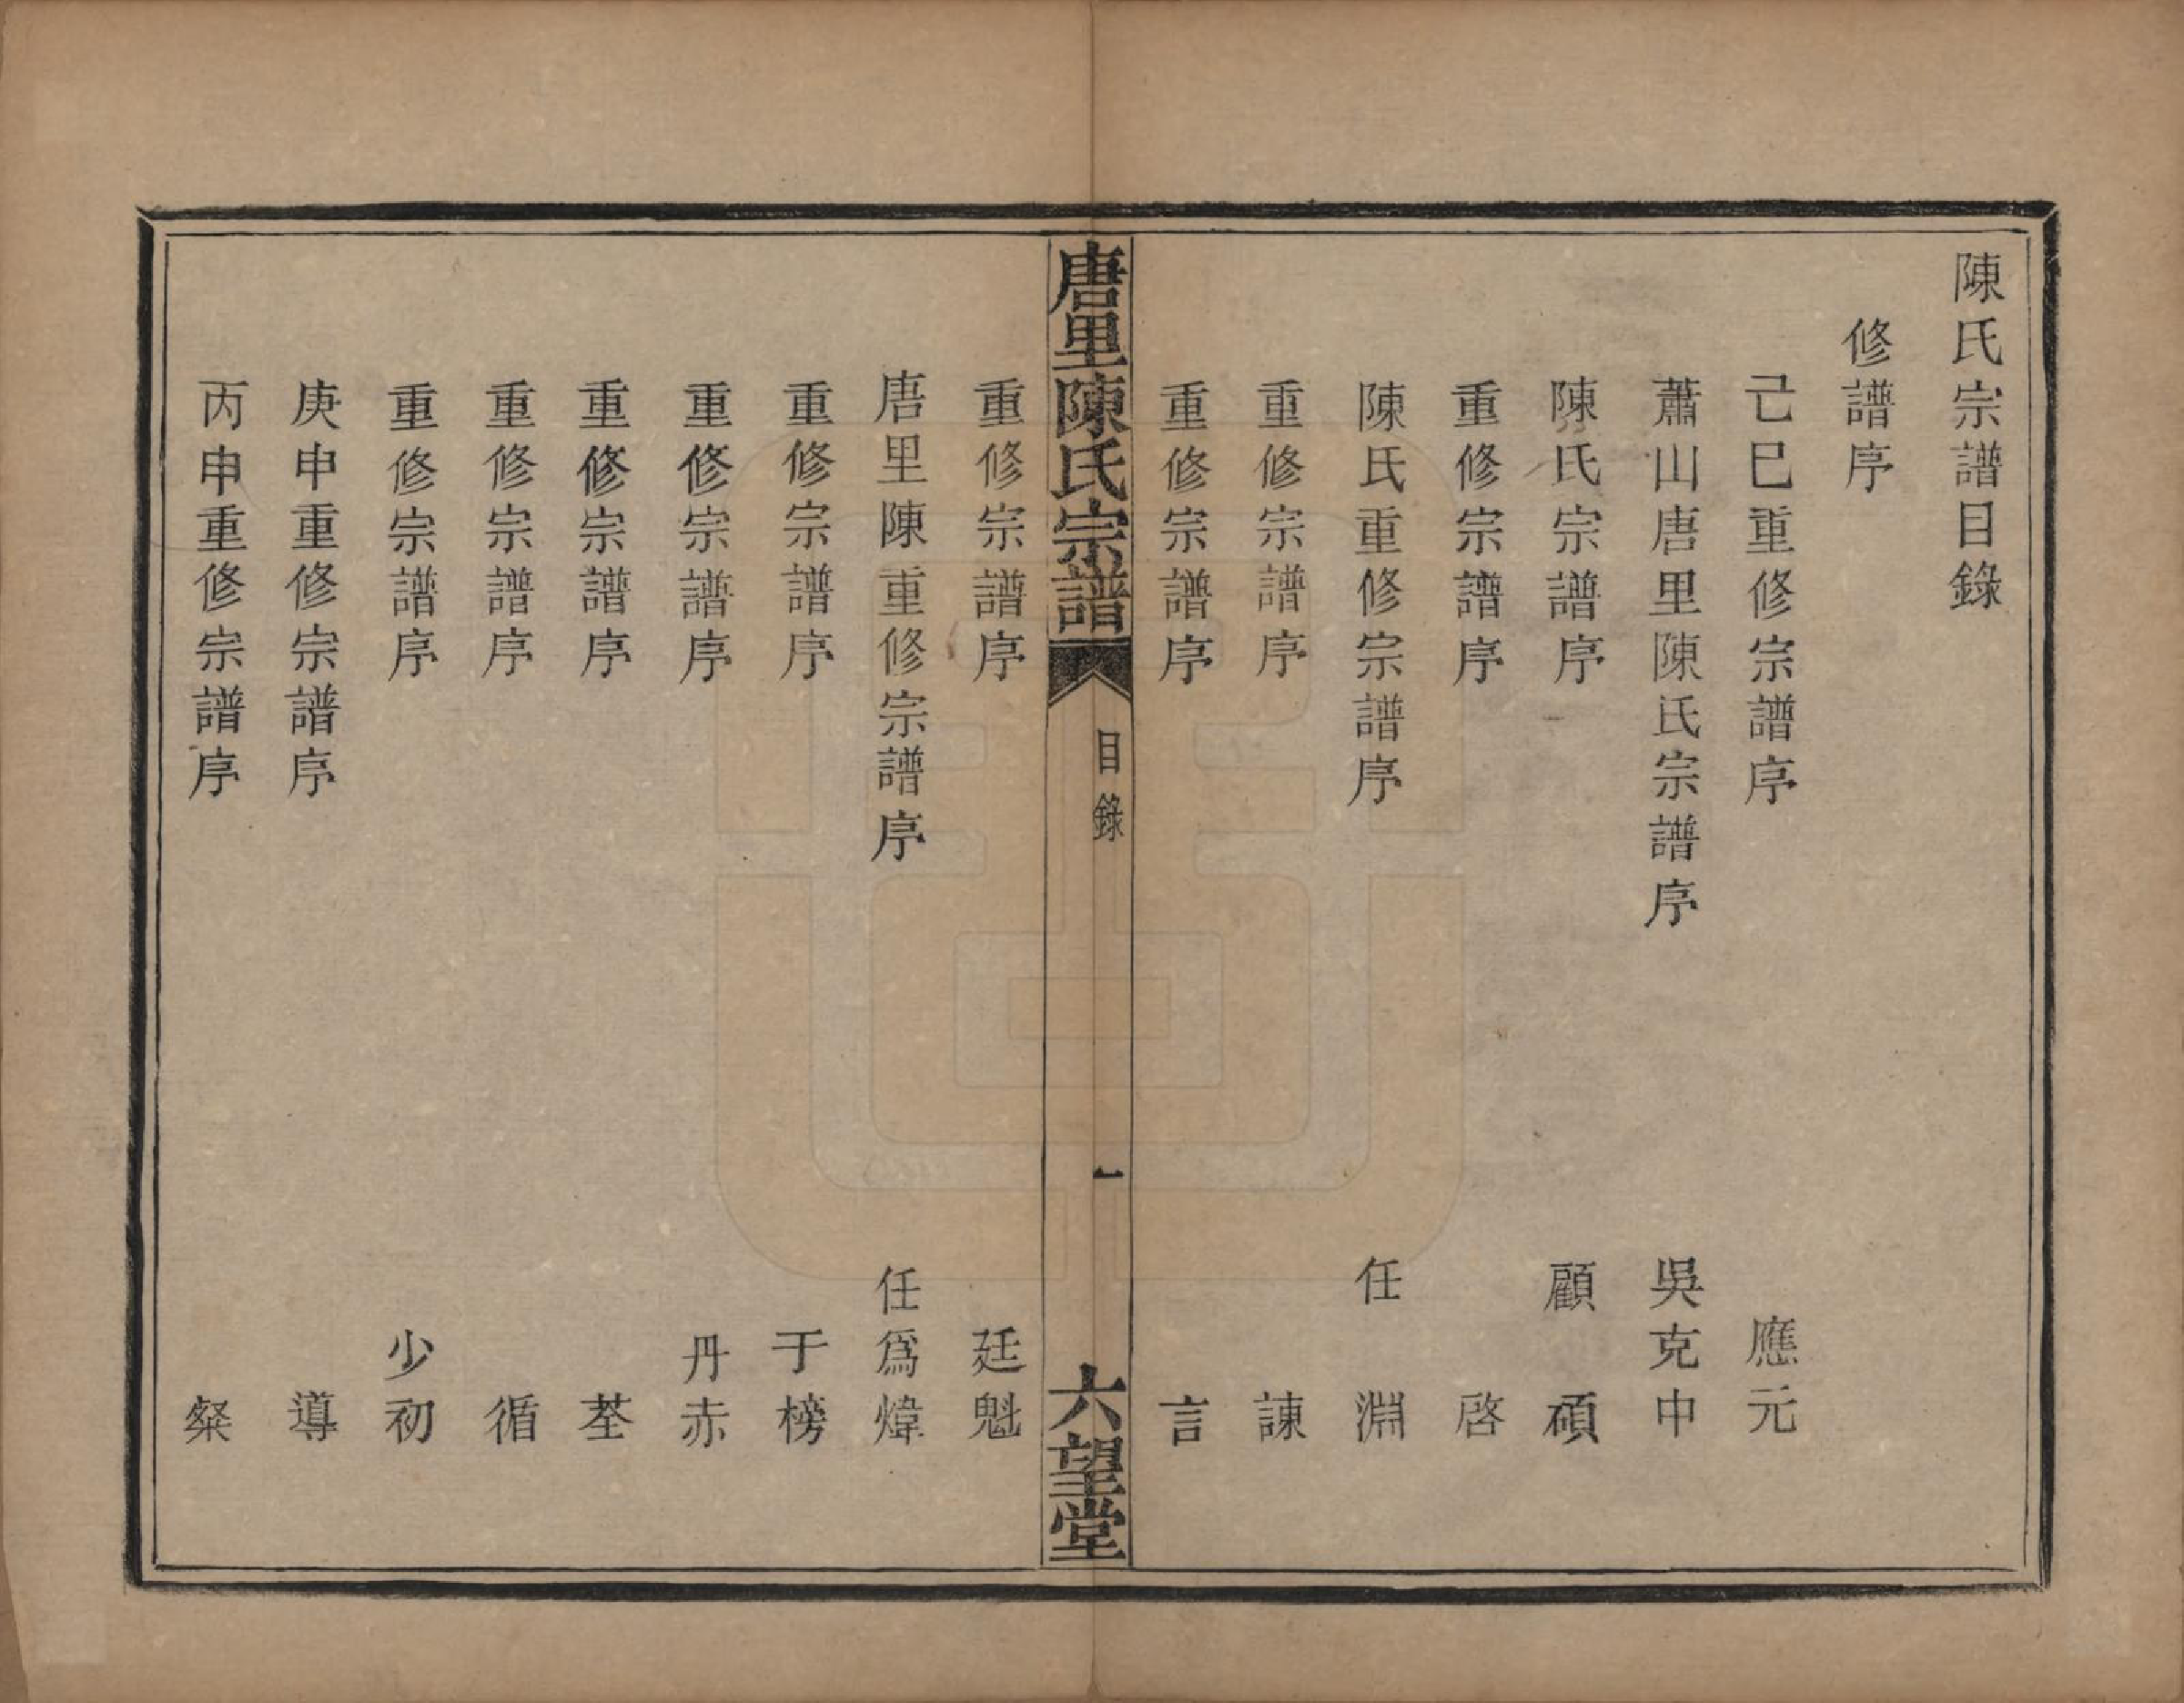 陳氏宗譜目錄
修譜序
己巳重修宗譜序 應元
蕭山唐里陳氏宗譜序 吳克中
陳氏宗譜序 顧碩
重修宗譜序 啓
陳氏重修宗譜序 任淵
重修宗譜序 諫
重修宗譜序 言
唐里陳氏宗譜 目錄 一 六望堂
重修宗譜序 廷魁
唐里陳重修宗譜序 任爲煒
重修宗譜序 于榜
重修宗譜序 丹赤
重修宗譜序 荃
重修宗譜序 循
重修宗譜序 少初
庚申重修宗譜序 導
丙申重修宗譜序 粲